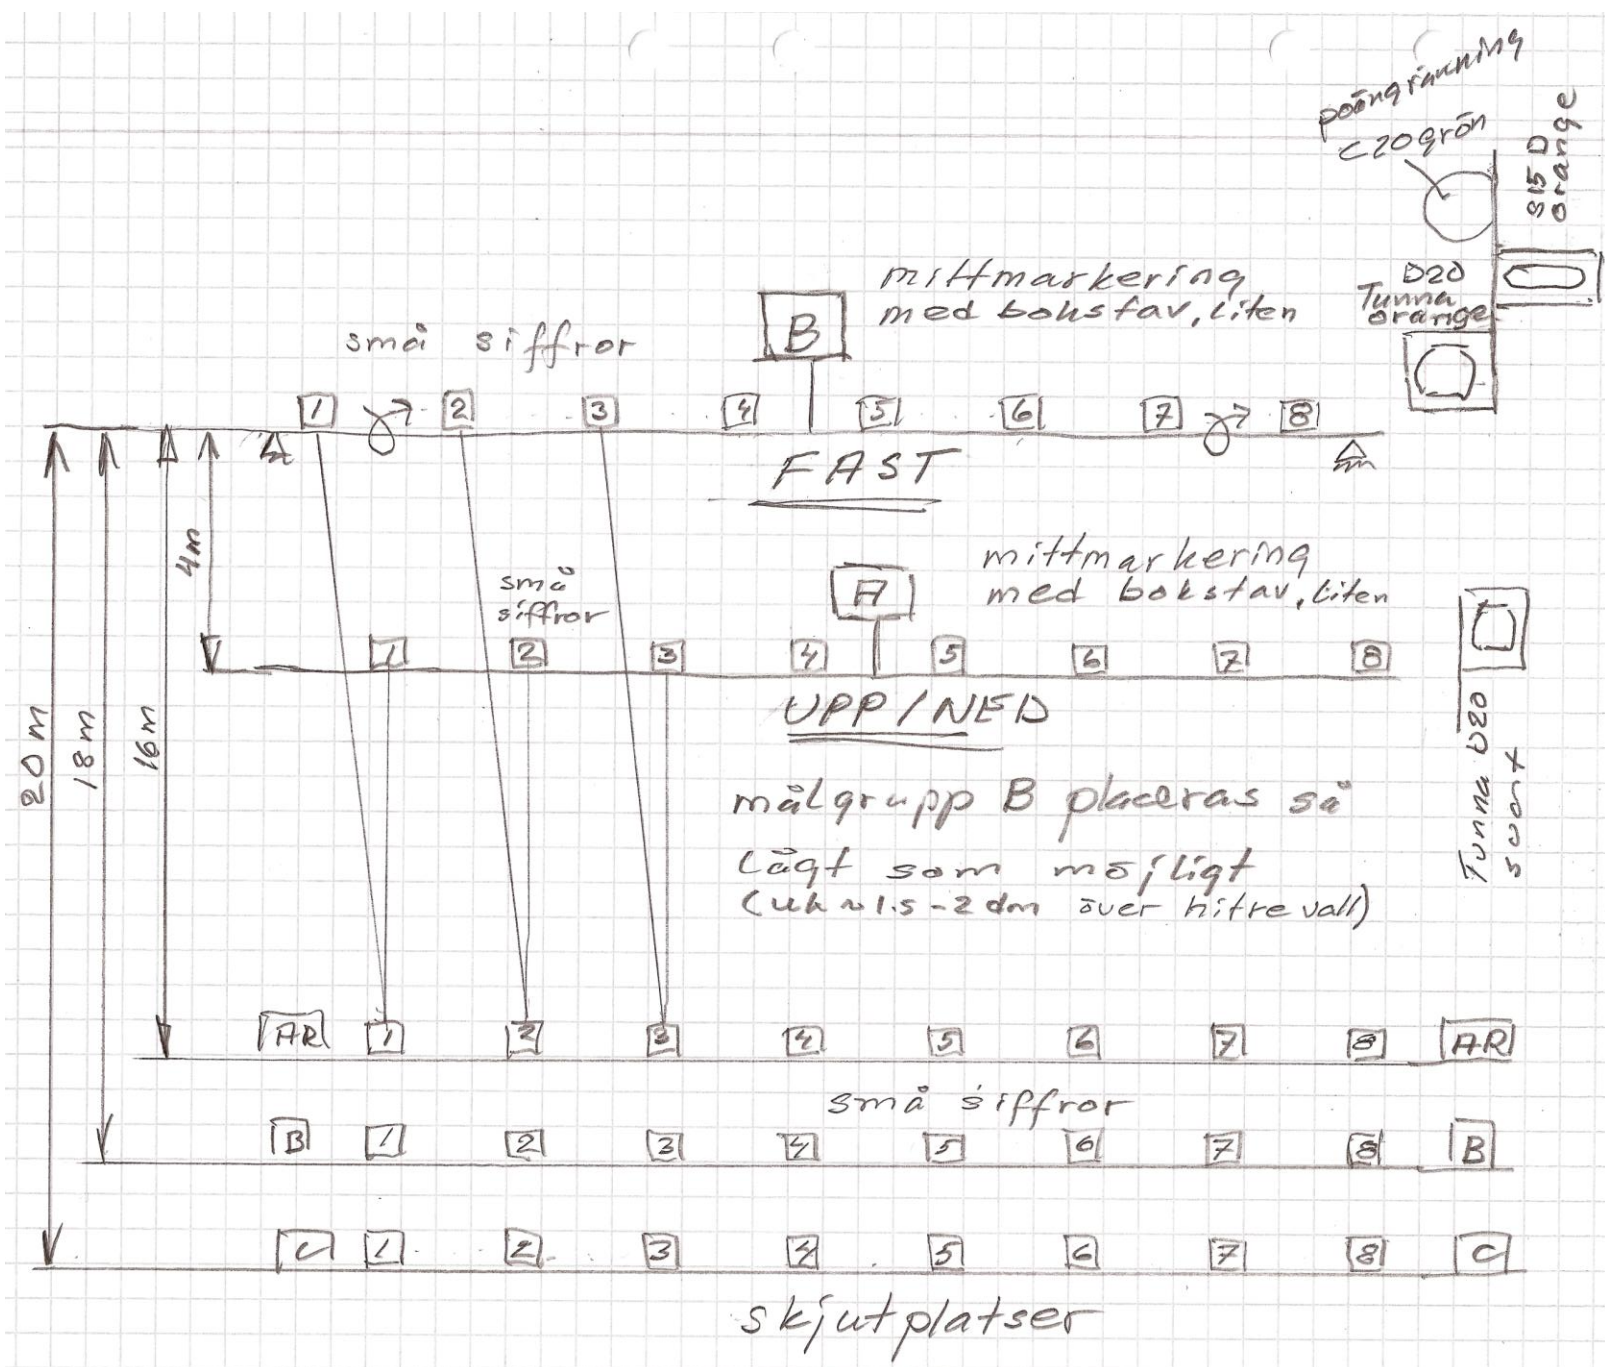 poängräkning
C20 grön
S15 D
orange
D20
Tunna
orange
mittmarkering
med bokstav, liten
B
små siffror
1 2 3 4 5 6 7 8
FAST
4m
mittmarkering
med bokstav, liten
små
siffror
A
1 2 3 4 5 6 7 8
UPP/NED
Tunna D20
svart
20m
18m
16m
målgrupp B placeras så
lågt som möjligt
(uk ~ 1.5 - 2 dm över hitre vall)
AR 1 2 3 4 5 6 7 8 AR
små siffror
B 1 2 3 4 5 6 7 8 B
C 1 2 3 4 5 6 7 8 C
skjutplatser